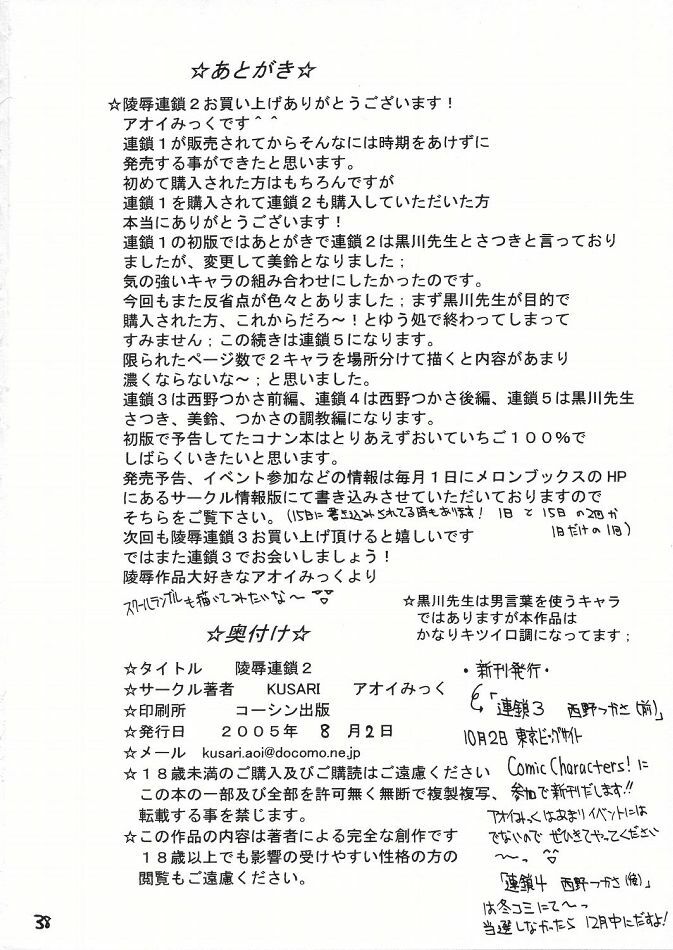 ☆あとがき☆
☆陵辱連鎖２お買い上げありがとうございます！
アオイみっくです＾＾
連鎖１が販売されてからそんなには時期をあけずに
発売する事ができたと思います。
初めて購入された方はもちろんですが
連鎖１を購入されて連鎖２も購入していただいた方
本当にありがとうございます！
連鎖１の初版ではあとがきで連鎖２は黒川先生とさつきと言っており
ましたが、変更して美鈴となりました；
気の強いキャラの組み合わせにしたかったのです。
今回もまた反省点が色々とありました；まず黒川先生が目的で
購入された方、これからだろ～！とゆう処で終わってしまって
すみません；この続きは連鎖５になります。
限られたページ数で２キャラを場所分けて描くと内容があまり
濃くならないな～；と思いました。
連鎖３は西野つかさ前編、連鎖４は西野つかさ後編、連鎖５は黒川先生
さつき、美鈴、つかさの調教編になります。
初版で予告してたコナン本はとりあえずおいていちご１００％で
しばらくいきたいと思います。
発売予告、イベント参加などの情報は毎月１日にメロンブックスのHP
にあるサークル情報版にて書き込みさせていただいておりますので
そちらをご覧下さい。(15日に書き込みされてる時もあります！ 1日と15日の2回か
1日だけの1回)
次回も陵辱連鎖３お買い上げ頂けると嬉しいです
ではまた連鎖３でお会いしましょう！
陵辱作品大好きなアオイみっくより
スクールランブルも描いてみたいな～
☆黒川先生は男言葉を使うキャラ
ではありますが本作品は
かなりキツイロ調になってます；
☆奥付け☆
☆タイトル　陵辱連鎖２
☆サークル著者　KUSARI　アオイみっく
☆印刷所　コーシン出版
☆発行日　２００５年 8 月2日
☆メール　kusari.aoi@docomo.ne.jp
☆１８歳未満のご購入及びご購読はご遠慮ください
この本の一部及び全部を許可無く無断で複製複写、
転載する事を禁じます。
☆この作品の内容は著者による完全な創作です
１８歳以上でも影響の受けやすい性格の方の
閲覧もご遠慮ください。
・新刊発行・
「連鎖3 西野つかさ(前)」
10月2日 東京ビッグサイト
Comic Characters!に
参加で新刊だします!!
アオイみっくはあまりイベントには
でないので ぜひきてやってください
～。
「連鎖4 西野つかさ(後)」
は冬コミにて～っ
当選しなかったら 12月中にだすよ!
38